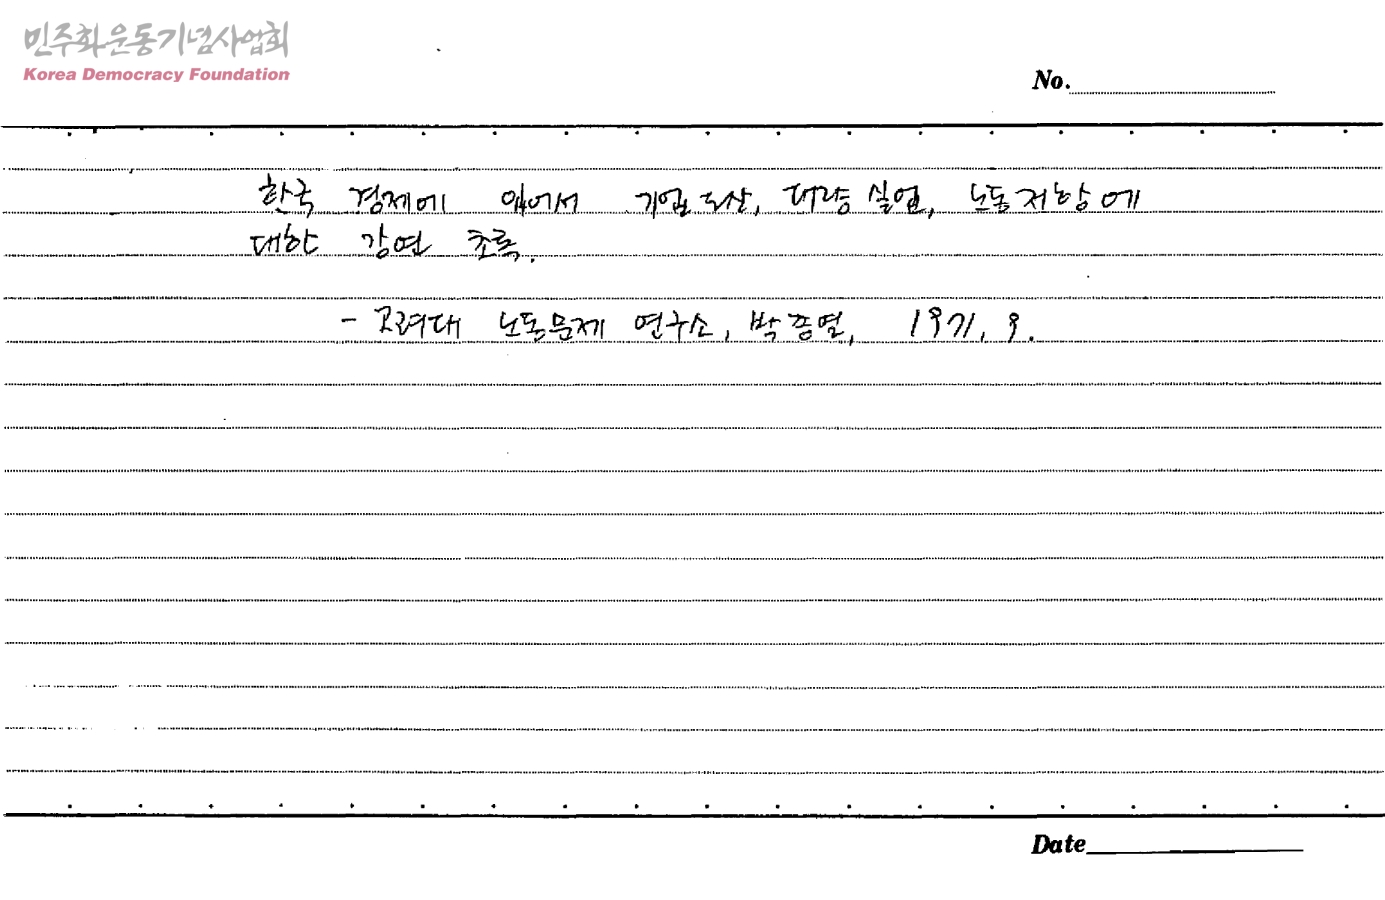 민주화운동기념사업회
Korea Democracy Foundation
No.
한국 경제에 있어서 기업도산, 대량 실업, 노동저항에
대한 강연 초록.
- 고려대 노동문제 연구소, 박종열, 1971. 9.
Date